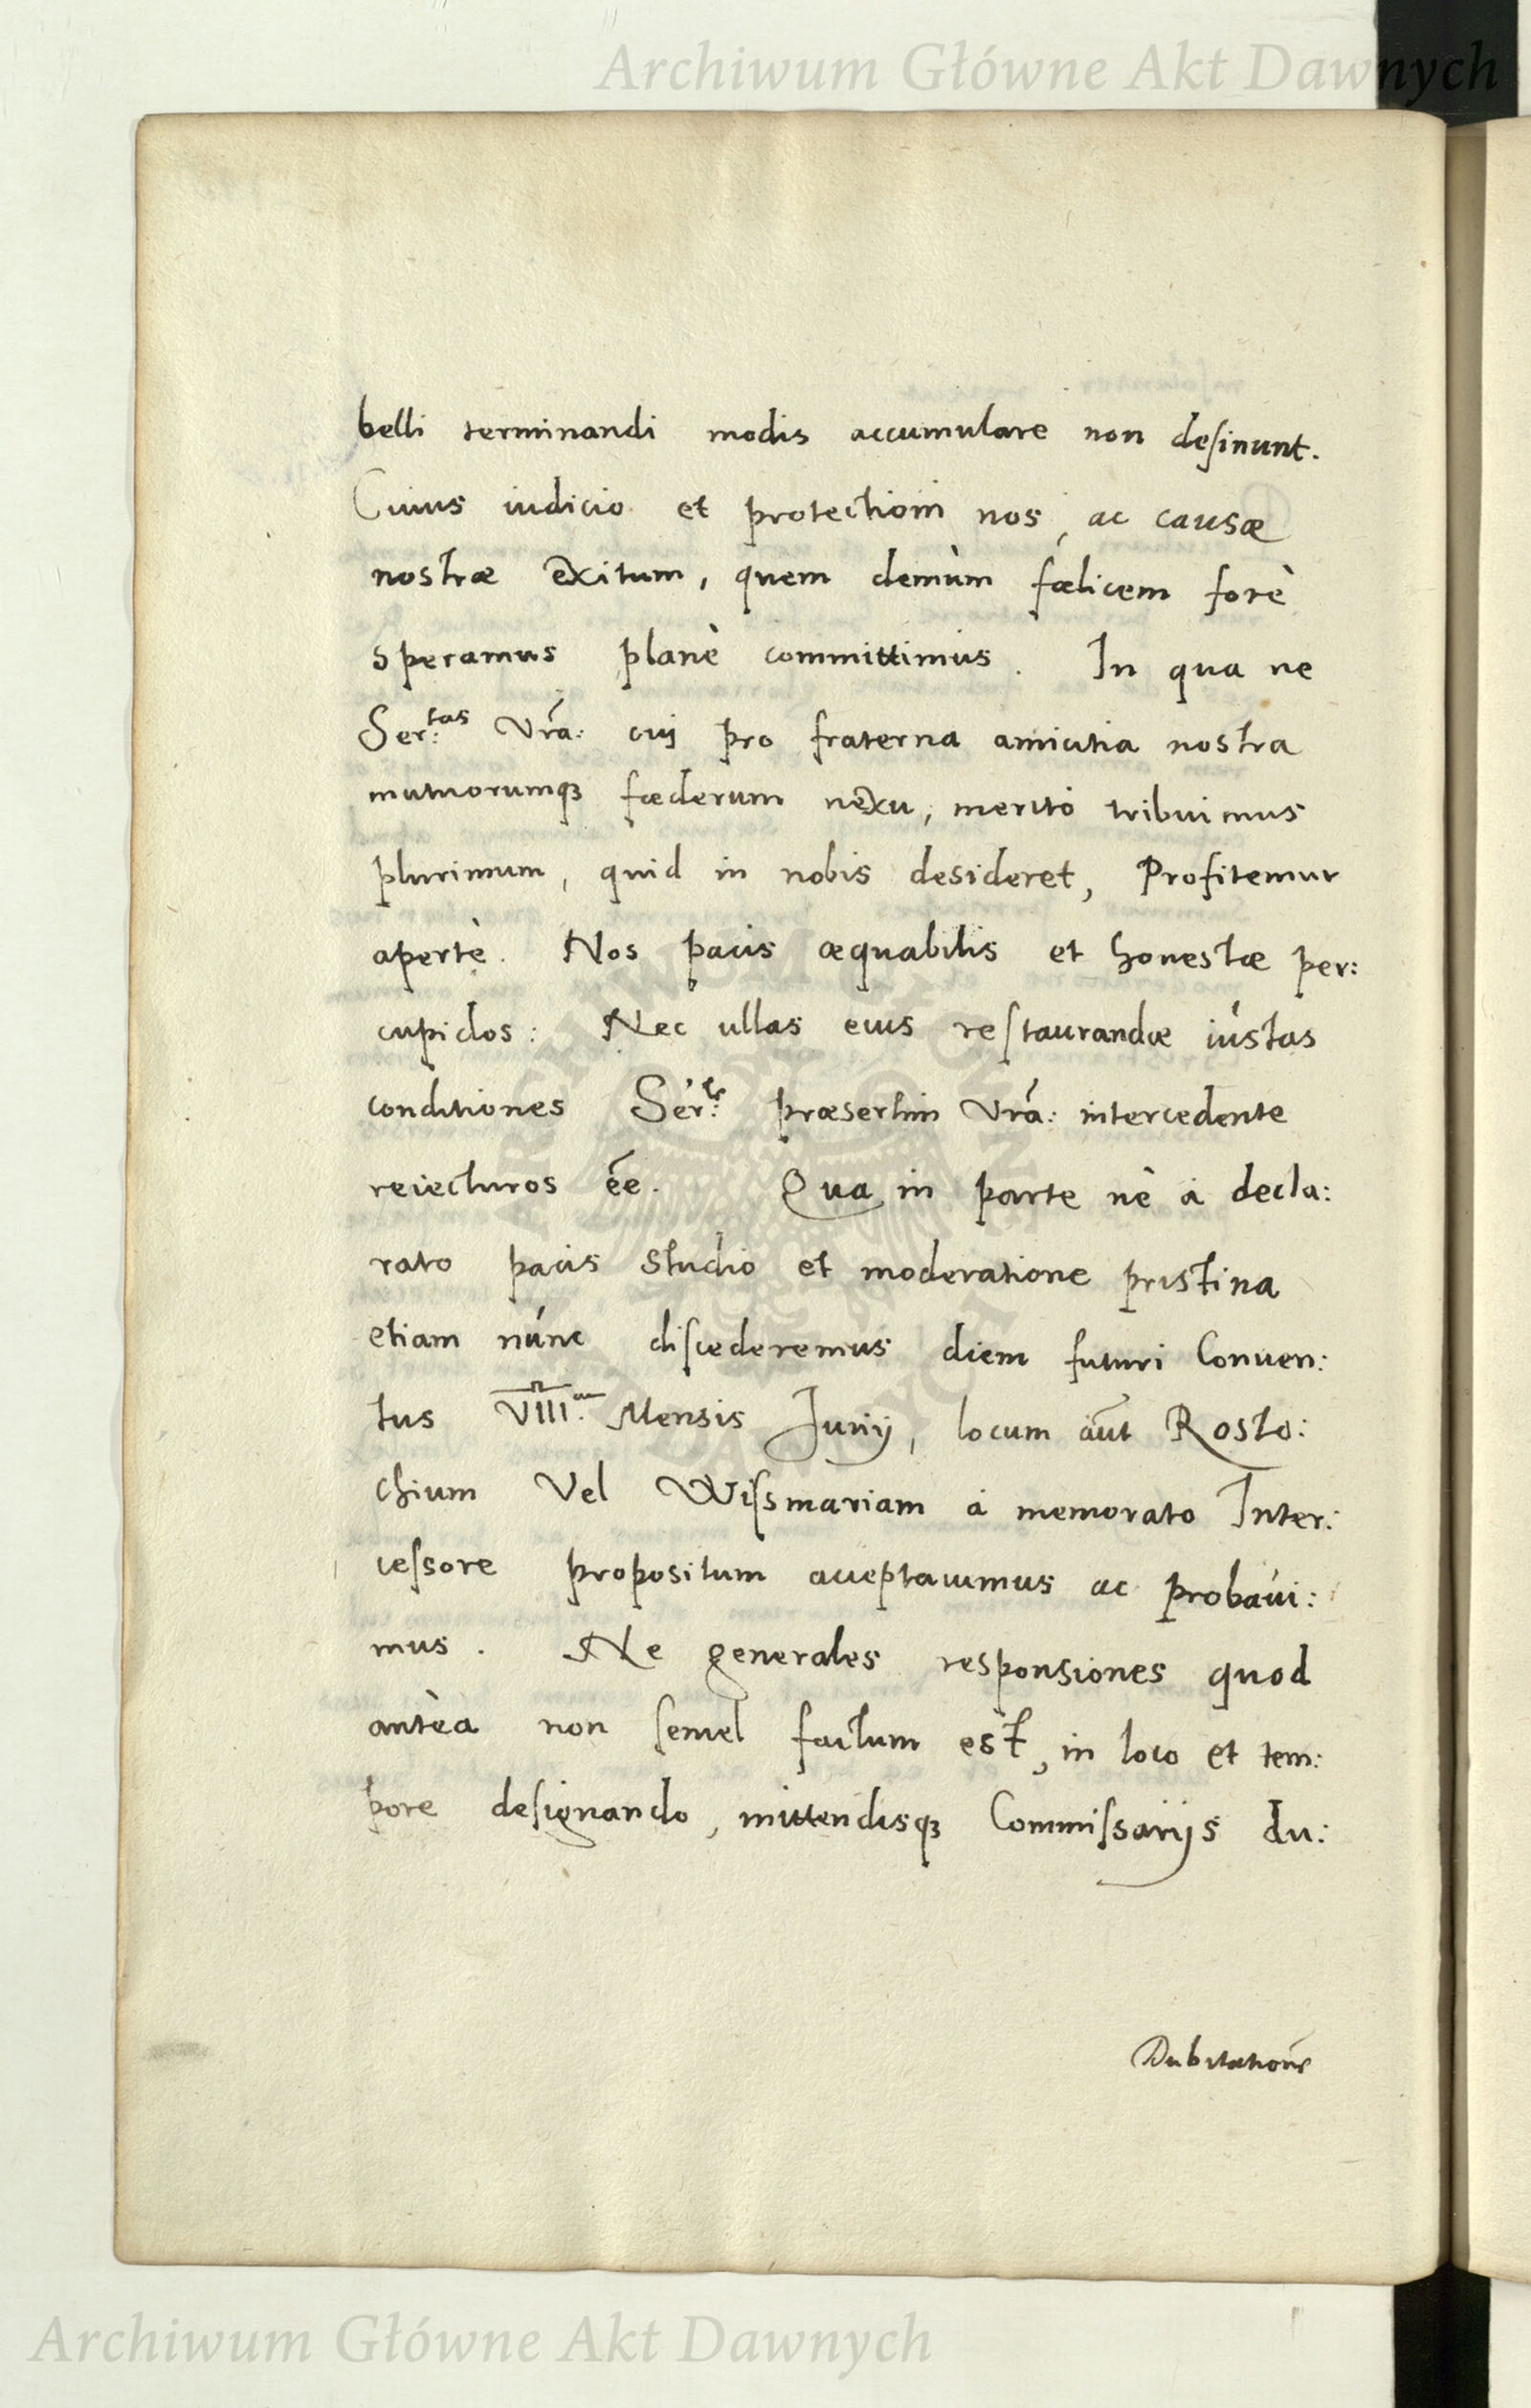 Archiwum Główne Akt Dawnych
belli terminandi modis accumulare non desinunt.
Cuius iudicio et protectioni nos, ac causæ
nostræ exitum, quem demùm fœlicem forè
speramus planè committimus. In qua ne
Ser:tas Vrã: cuj pro fraterna amicitia nostra
mutuorumqȝ fœderum nexu, meritò tribuimus
plurimum, quid in nobis desideret, Profitemur
apertè. Nos pacis æquabilis et honestæ per:
cupidos: Nec ullas eius restaurandæ iústas
conditiones Ser:te præsertim Vrã: intercedente
reiecturos ẽe. Qua in parte nè à decla:
rato pacis studio et moderatione pristina
etiam núnc discederemus diem futuri Conuen:
tus VIII.am Mensis Junij, locum aũt Rosto:
chium Vel Wissmariam à memorato Inter:
cessore propositum acceptauimus ac probáui:
mus. Ne generales responsiones quod
antèa non semel factum est, in loco et tem:
pore designando, mittendisqȝ Commissarijs du:
Dubitationẽ
Archiwum Główne Akt Dawnych